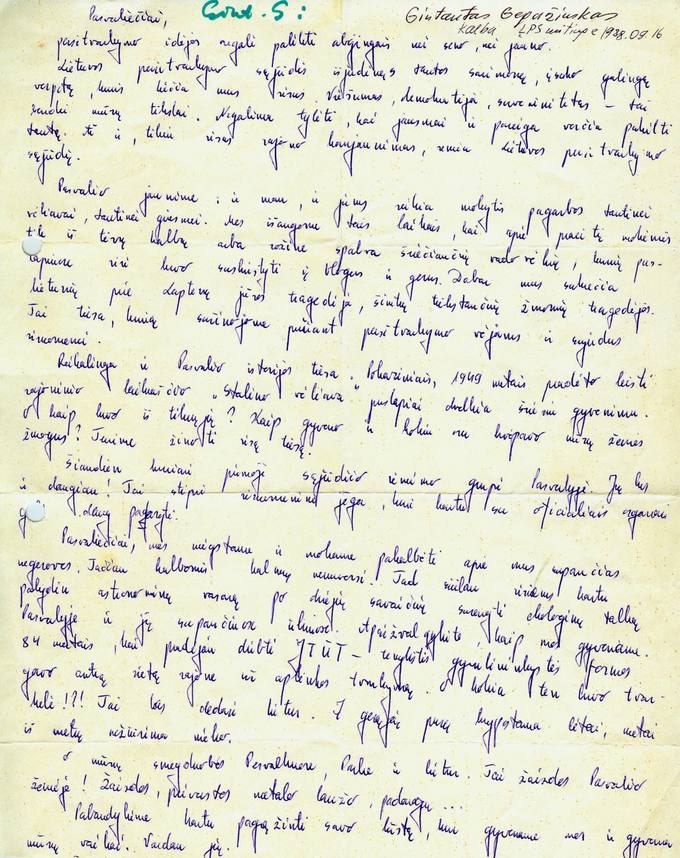 Gintautas Gegužinskas
kalba LPS mitinge 1988.09.16
Pasvaliečiai,
persitvarkymo idėjos negali palikti abejingais nei seno, nei jauno.
Lietuvos persitvarkymo sąjūdis išjudinęs tautos sąmonę, įsuko galingą
verpetą, kuris liečia mus visus. Viešumas, demokratija, suverenitetas – tai
šiandien mūsų tikslai. Negalima tylėti, kai jausmai ir pareiga verčia pakilti
tautą. Aš ir, tikiu visas rajono jaunimas, remia Lietuvos persitvarkymo
sąjūdį.
Pasvalio jaunime: ir man, ir jums reikia mokytis pagarbos tautinei
vėliavai, tautinei giesmei. Mes išaugome tais laikais, kai apie praeitį mokėmės
tik iš tėvų kalbų arba rožine spalva šviečiančių vadovėlių, kurių pus-
lapiuose visi buvo suskirstyti į blogus ir gerus. Dabar mus sukrečia
lietuvių prie Laptevų jūros tragedija, šimtų tūkstančių žmonių tragedijos.
Tai tiesa, kurią sužinojome pučiant persitvarkymo vėjams ir sujudus
visuomenei.
Reikalinga ir Pasvalio istorijos tiesa. Pokariniais, 1949 metais pradėto leisti
rajoninio laikraščio „Stalino vėliava“ puslapiai dvelkia šviesiu gyvenimu.
O kaip buvo iš tikrųjų? Kaip gyveno ir kokiu oru kvėpavo mūsų žemės
žmogus? Turime žinoti visą tiesą.
Šiandien kuriasi pirmoji sąjūdžio rėmimo grupė Pasvalyje. Jų bus
ir daugiau! Tai stipri visuomeninė jėga, kuri kartu su oficialiais organais
gali daug padaryti.
Pasvaliečiai, mes mėgstame ir mokame pakalbėti apie mus supančias
negeroves. Tačiau kalbomis kalnų nenuversi. Tad siūlau visiems kartu
palydėti astronominę vasarą po dviejų savaičių surengti ekologinę talką
Pasvalyje ir ją supančiose ūkiuose. Apsižvalgykite, kaip mes gyvename.
84 metais, kai pradėjau dirbti JTŪT – tarybinės gyvulininkystės formos
gavo antrą vietą rajone už aplinkos tvarkymą. O kokia ten buvo tvar-
kelė!?! Tai kas dedasi kitur. Į gerąją pusę krypstama lėtai, metai
iš metų nežiūrima nieko.
O mūsų smegduobės Pasvalkuose, Parke ir kitur. Tai žaizdos Pasvalio
žemėje! Žaizdos, privarstos metalo laužo, padangų ...
Pabandykime kartu pagražinti savo kraštą, kur gyvename mes ir gyvens
mūsų vaikai. Vardan jų.